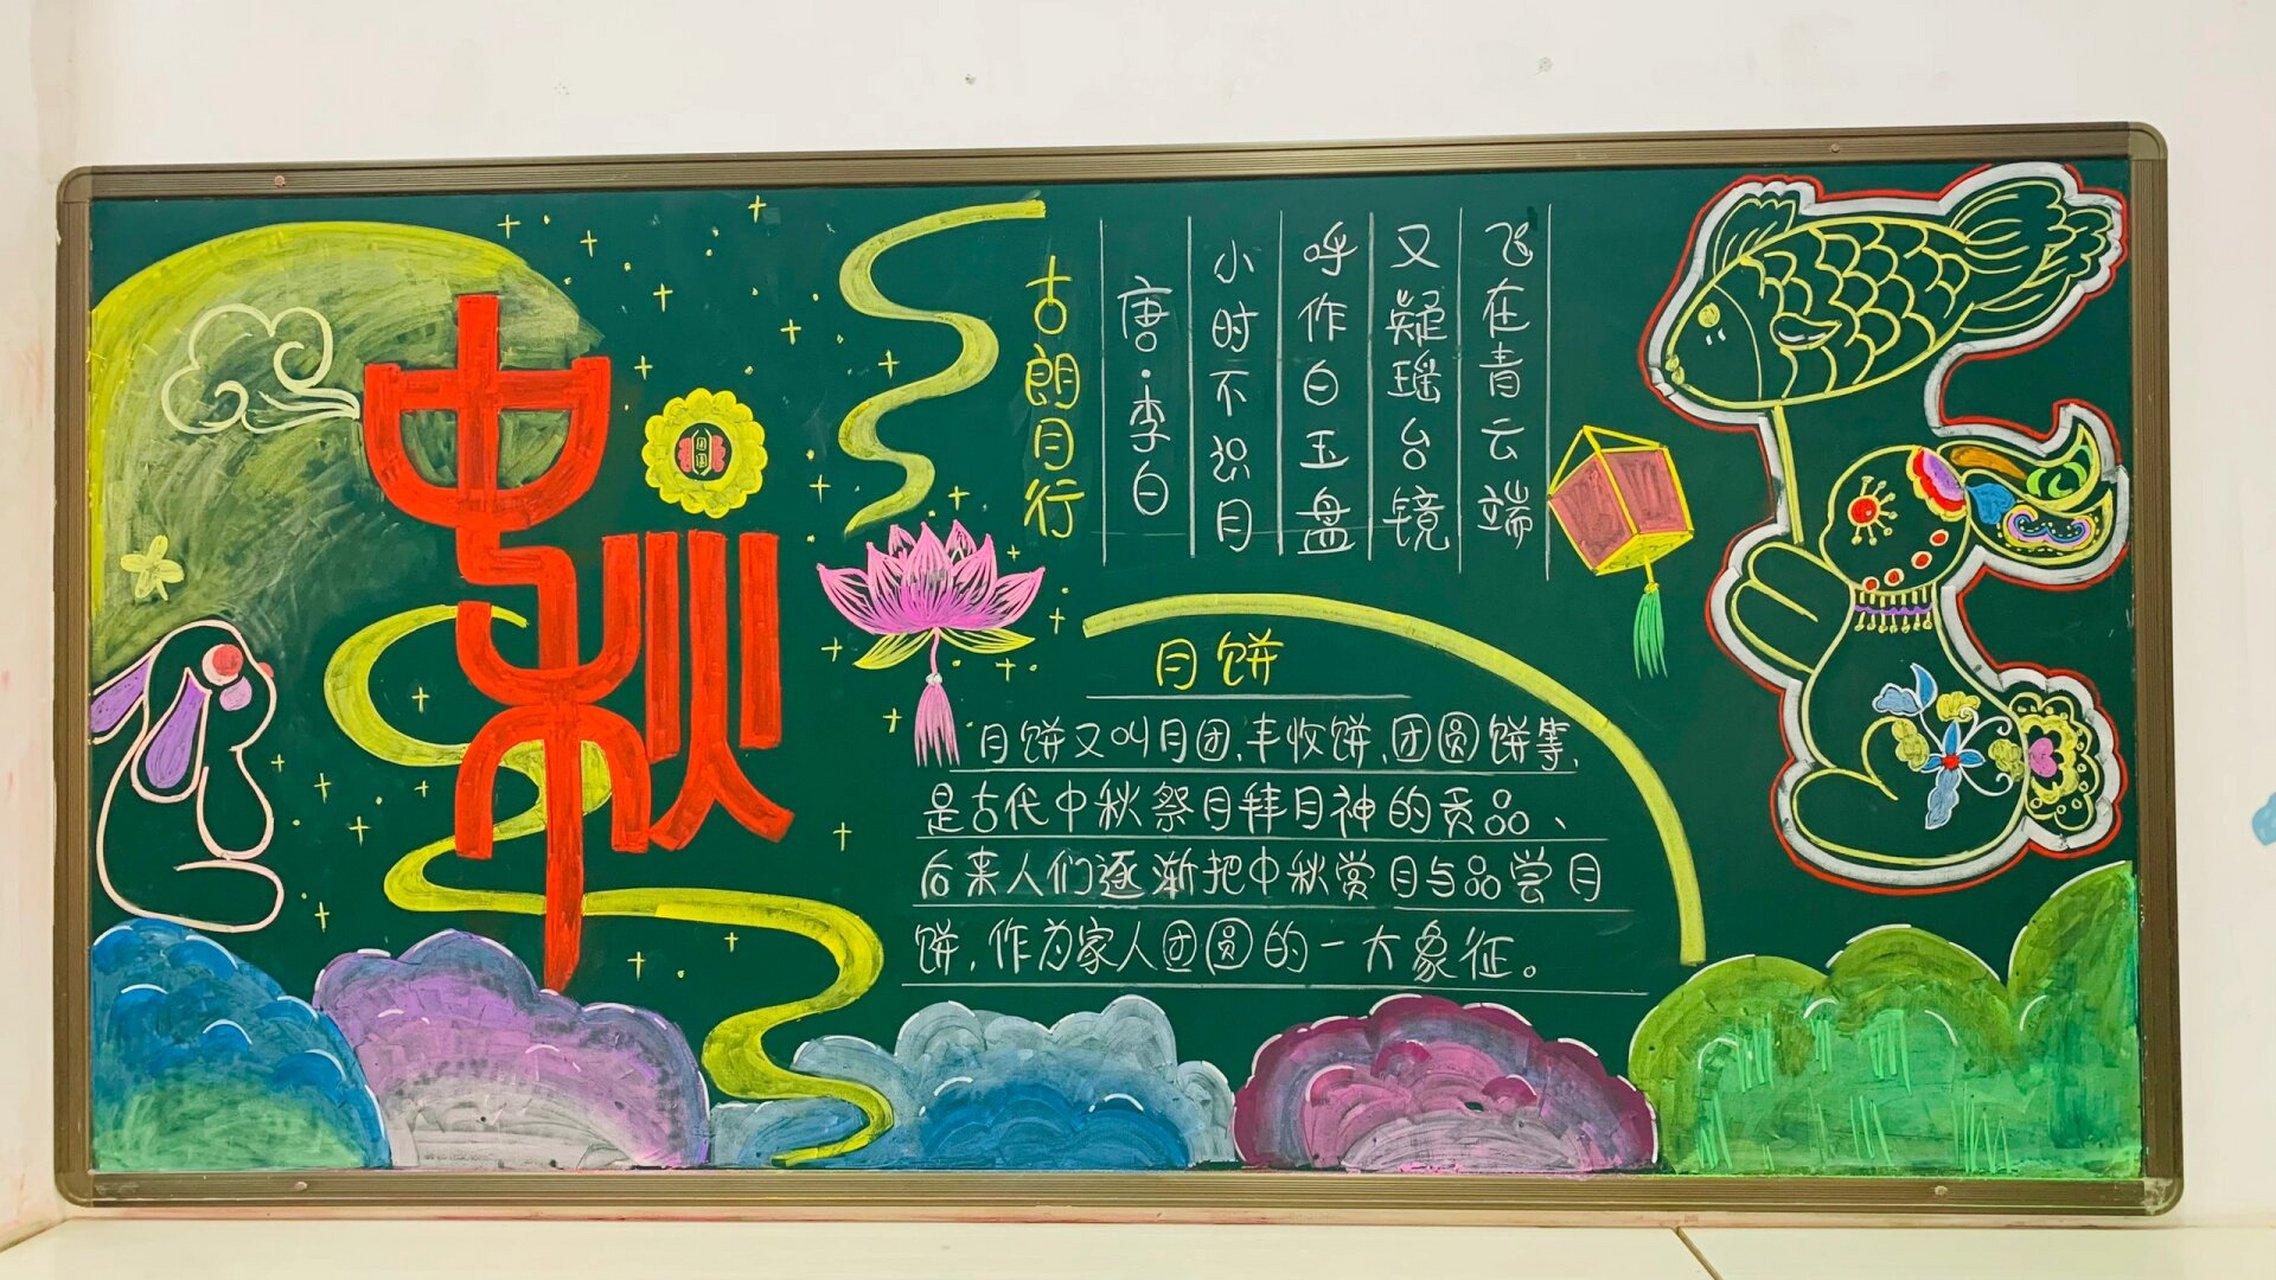 中秋
团圆
古朗月行
唐·李白
小时不识月
呼作白玉盘
又疑瑶台镜
飞在青云端
月饼
月饼又叫月团、丰收饼、团圆饼等、
是古代中秋祭月拜月神的贡品、
后来人们逐渐把中秋赏月与品尝月
饼，作为家人团圆的一大象征。